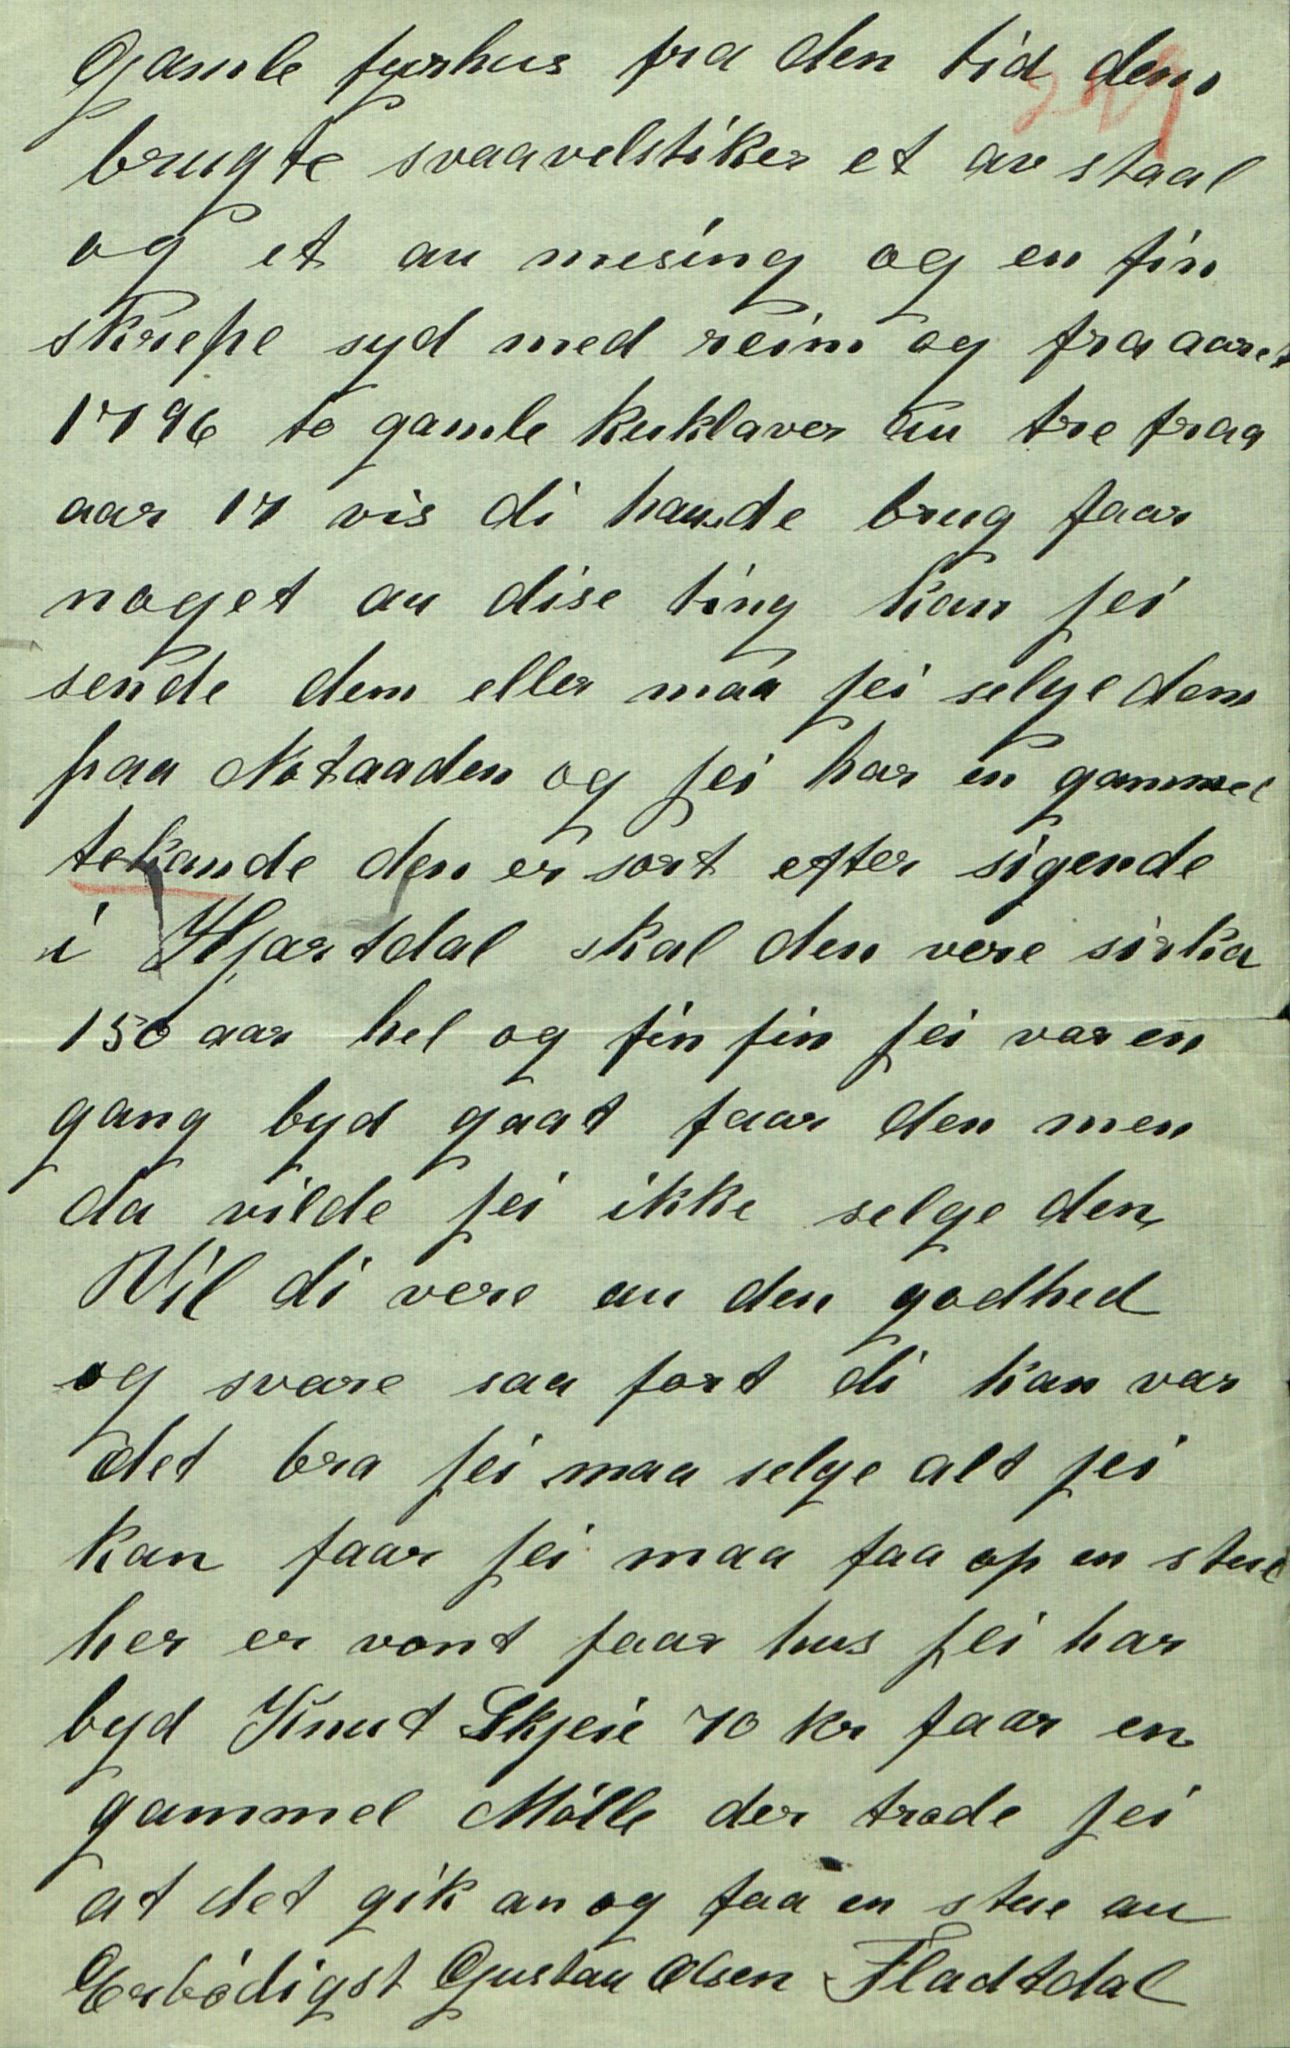 Gamle fyrhus fra den tid dem
brugte svaavelstiker et av staal
og et au mesing og en fin
skrepe syd med reim og fra aaret
1796 to gamle kuklaver au tre fraa
aar 17 vis di haude brug faar
noget au dise ting kan jei
sende dem eller maa jei selge dem
paa Notaaden og jei har en gammel
tekande den er sort efter sigende
i Hjartdal skal den vere sirka
150 aar hel og fin fin jei var en
gang byd gaat faar den men
da vilde jei ikke selge den
Vil di vere au den godhed
og svare saa fort di kan var
det bra jei maa selge alt jei
kan faar jei maa faa op en stue
her er vont faar hus jei har
byd Knut Skjeie 70 kr faar en
gammel Mölle der trode jei
at det gik an og faa en stue au
Erbödigst Gustau Olsen Fladtdal